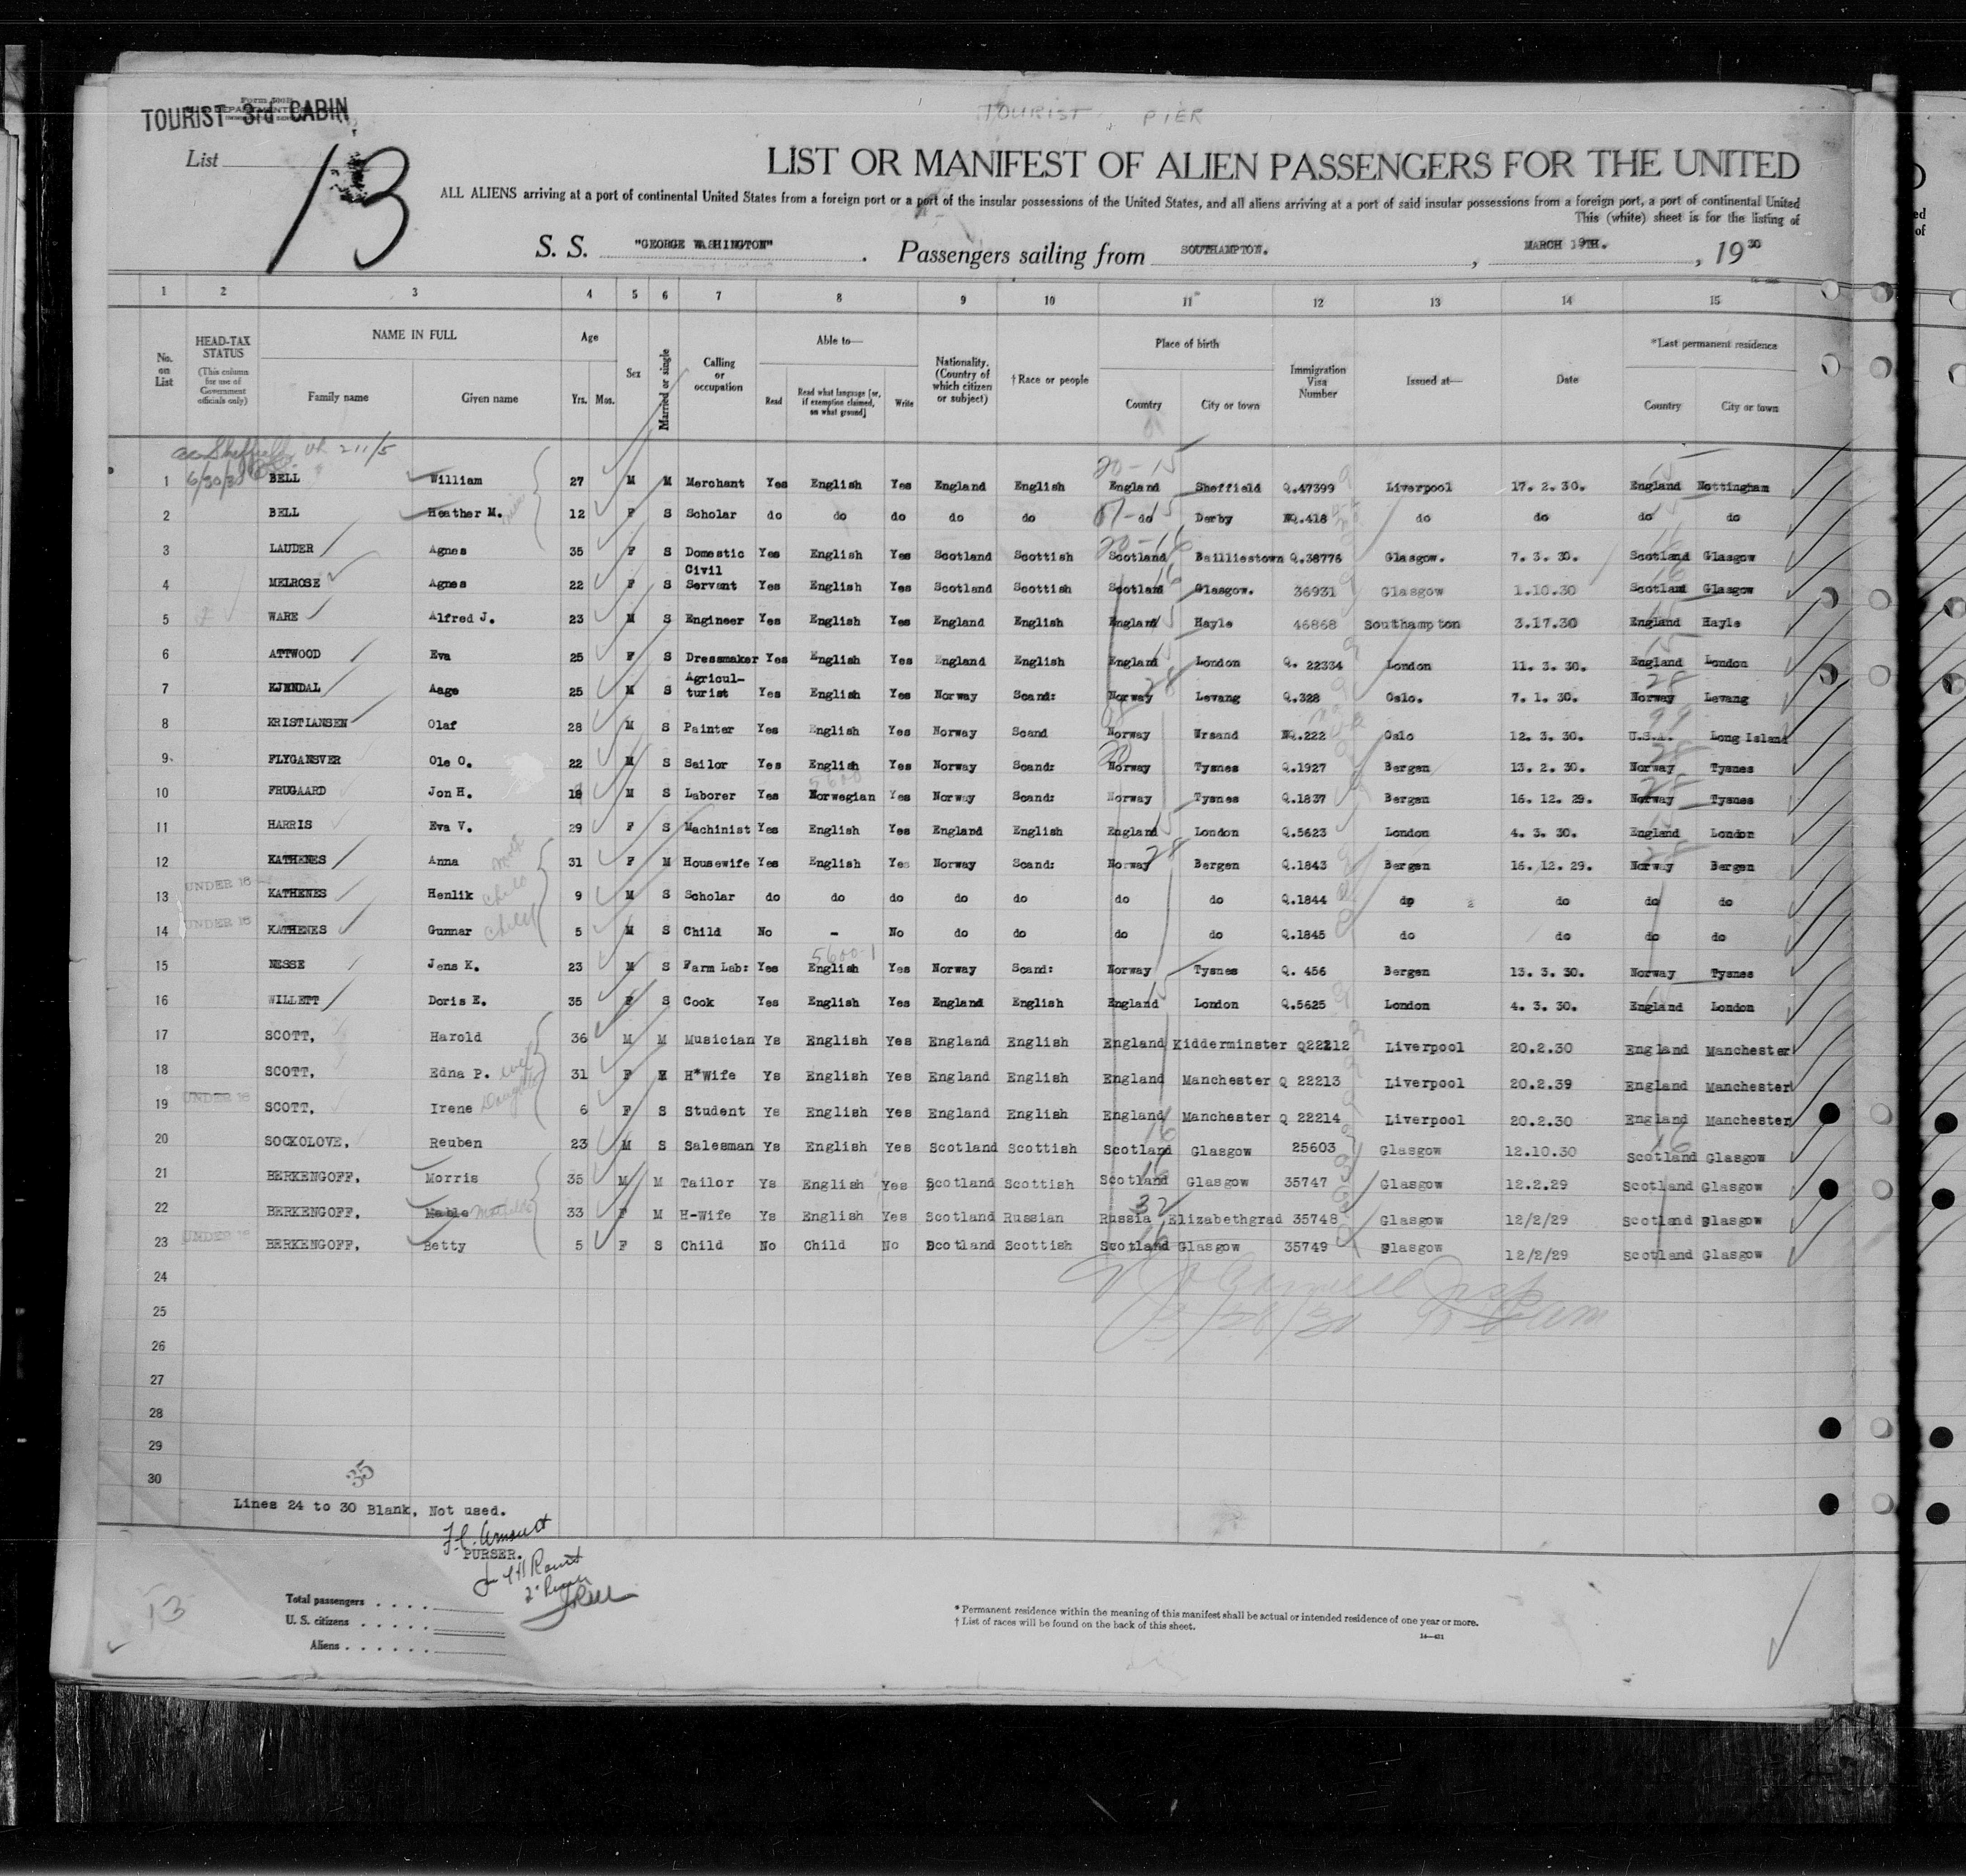 TOURIST 3rd CABIN
TOURIST PIER
List 13
LIST OR MANIFEST OF ALIEN PASSENGERS FOR THE UNITED
ALL ALIENS arriving at a port of continental United States from a foreign port or a port of the insular possessions of the United States, and all aliens arriving at a port of said insular possessions from a foreign port, a port of continental United
This (white) sheet is for the listing of
S. S. "GEORGE WASHINGTON" . Passengers sailing from SOUTHAMPTON. , MARCH 19TH. , 19 30
1 2 3 4 5 6 7 8 9 10 11 12 13 14 15
No. on List
HEAD-TAX STATUS (This column for use of Government officials only)
NAME IN FULL
Family name Given name
Age
Yrs. Mos.
Sex
Married or single
Calling or occupation
Able to—
Read
Read what language [or, if exemption claimed, on what ground]
Write
Nationality. (Country of which citizen or subject)
† Race or people
Place of birth
Country City or town
Immigration Visa Number
Issued at—
Date
*Last permanent residence
Country City or town
1 6/30/38 BELL William 27 M M Merchant Yes English Yes England English England Sheffield Q.47399 Liverpool 17. 2. 30. England Nottingham
2 BELL Heather M. 12 F S Scholar do do do do do do Derby NQ.418 do do do do
3 LAUDER Agnes 35 F S Domestic Yes English Yes Scotland Scottish Scotland Bailliestown Q.38776 Glasgow. 7. 3. 30. Scotland Glasgow
4 MELROSE Agnes 22 F S Civil Servant Yes English Yes Scotland Scottish Scotland Glasgow. 36931 Glasgow 1.10.30 Scotland Glasgow
5 WARE Alfred J. 23 M S Engineer Yes English Yes England English England Hayle 46868 Southampton 3.17.30 England Hayle
6 ATTWOOD Eva 25 F S Dressmaker Yes English Yes England English England London Q. 22334 London 11. 3. 30. England London
7 KJENDAL Aage 25 M S Agricul- turist Yes English Yes Norway Scand: Norway Levang Q.328 Oslo. 7. 1. 30. Norway Levang
8 KRISTIANSEN Olaf 28 M S Painter Yes English Yes Norway Scand Norway Ursand NQ.222 Oslo 12. 3. 30. U.S.A. Long Island
9 FLYGANSVER Ole O. 22 M S Sailor Yes English Yes Norway Scand: Norway Tysnes Q.1927 Bergen 13. 2. 30. Norway Tysnes
10 FRUGAARD Jon H. 18 M S Laborer Yes Norwegian Yes Norway Scand: Norway Tysnes Q.1837 Bergen 16. 12. 29. Norway Tysnes
11 HARRIS Eva V. 29 F S Machinist Yes English Yes England English England London Q.5623 London 4. 3. 30. England London
12 KATHENES Anna 31 F M Housewife Yes English Yes Norway Scand: Norway Bergen Q.1843 Bergen 16. 12. 29. Norway Bergen
13 UNDER 16 KATHENES Henlik child 9 M S Scholar do do do do do do do Q.1844 do do do do
14 UNDER 16 KATHENES Gunnar child 5 M S Child No - No do do do do Q.1845 do do do do
15 NESSE Jens K. 23 M S Farm Lab: Yes English Yes Norway Scand: Norway Tysnes Q. 456 Bergen 13. 3. 30. Norway Tysnes
16 WILLETT Doris E. 35 F S Cook Yes English Yes England English England London Q.5625 London 4. 3. 30. England London
17 SCOTT, Harold 36 M M Musician Ys English Yes England English England Kidderminster Q22212 Liverpool 20.2.30 England Manchester
18 SCOTT, Edna P. wife 31 F M H*Wife Ys English Yes England English England Manchester Q 22213 Liverpool 20.2.39 England Manchester
19 UNDER 16 SCOTT, Irene Daughter 6 F S Student Ys English Yes England English England Manchester Q 22214 Liverpool 20.2.30 England Manchester
20 SOCKOLOVE, Reuben 23 M S Salesman Ys English Yes Scotland Scottish Scotland Glasgow 25603 Glasgow 12.10.30 Scotland Glasgow
21 BERKENGOFF, Morris 35 M M Tailor Ys English Yes Scotland Scottish Scotland Glasgow 35747 Glasgow 12.2.29 Scotland Glasgow
22 BERKENGOFF, Mable 33 F M H-Wife Ys English Yes Scotland Russian Russia Elizabethgrad 35748 Glasgow 12/2/29 Scotland Glasgow
23 UNDER 16 BERKENGOFF, Betty 5 F S Child No Child No Scotland Scottish Scotland Glasgow 35749 Glasgow 12/2/29 Scotland Glasgow
24
25
26
27
28
29
30
35
Lines 24 to 30 Blank, Not used.
PURSER.
13
Total passengers . . . .
U. S. citizens . . . . .
Aliens . . . . . .
* Permanent residence within the meaning of this manifest shall be actual or intended residence of one year or more.
† List of races will be found on the back of this sheet.